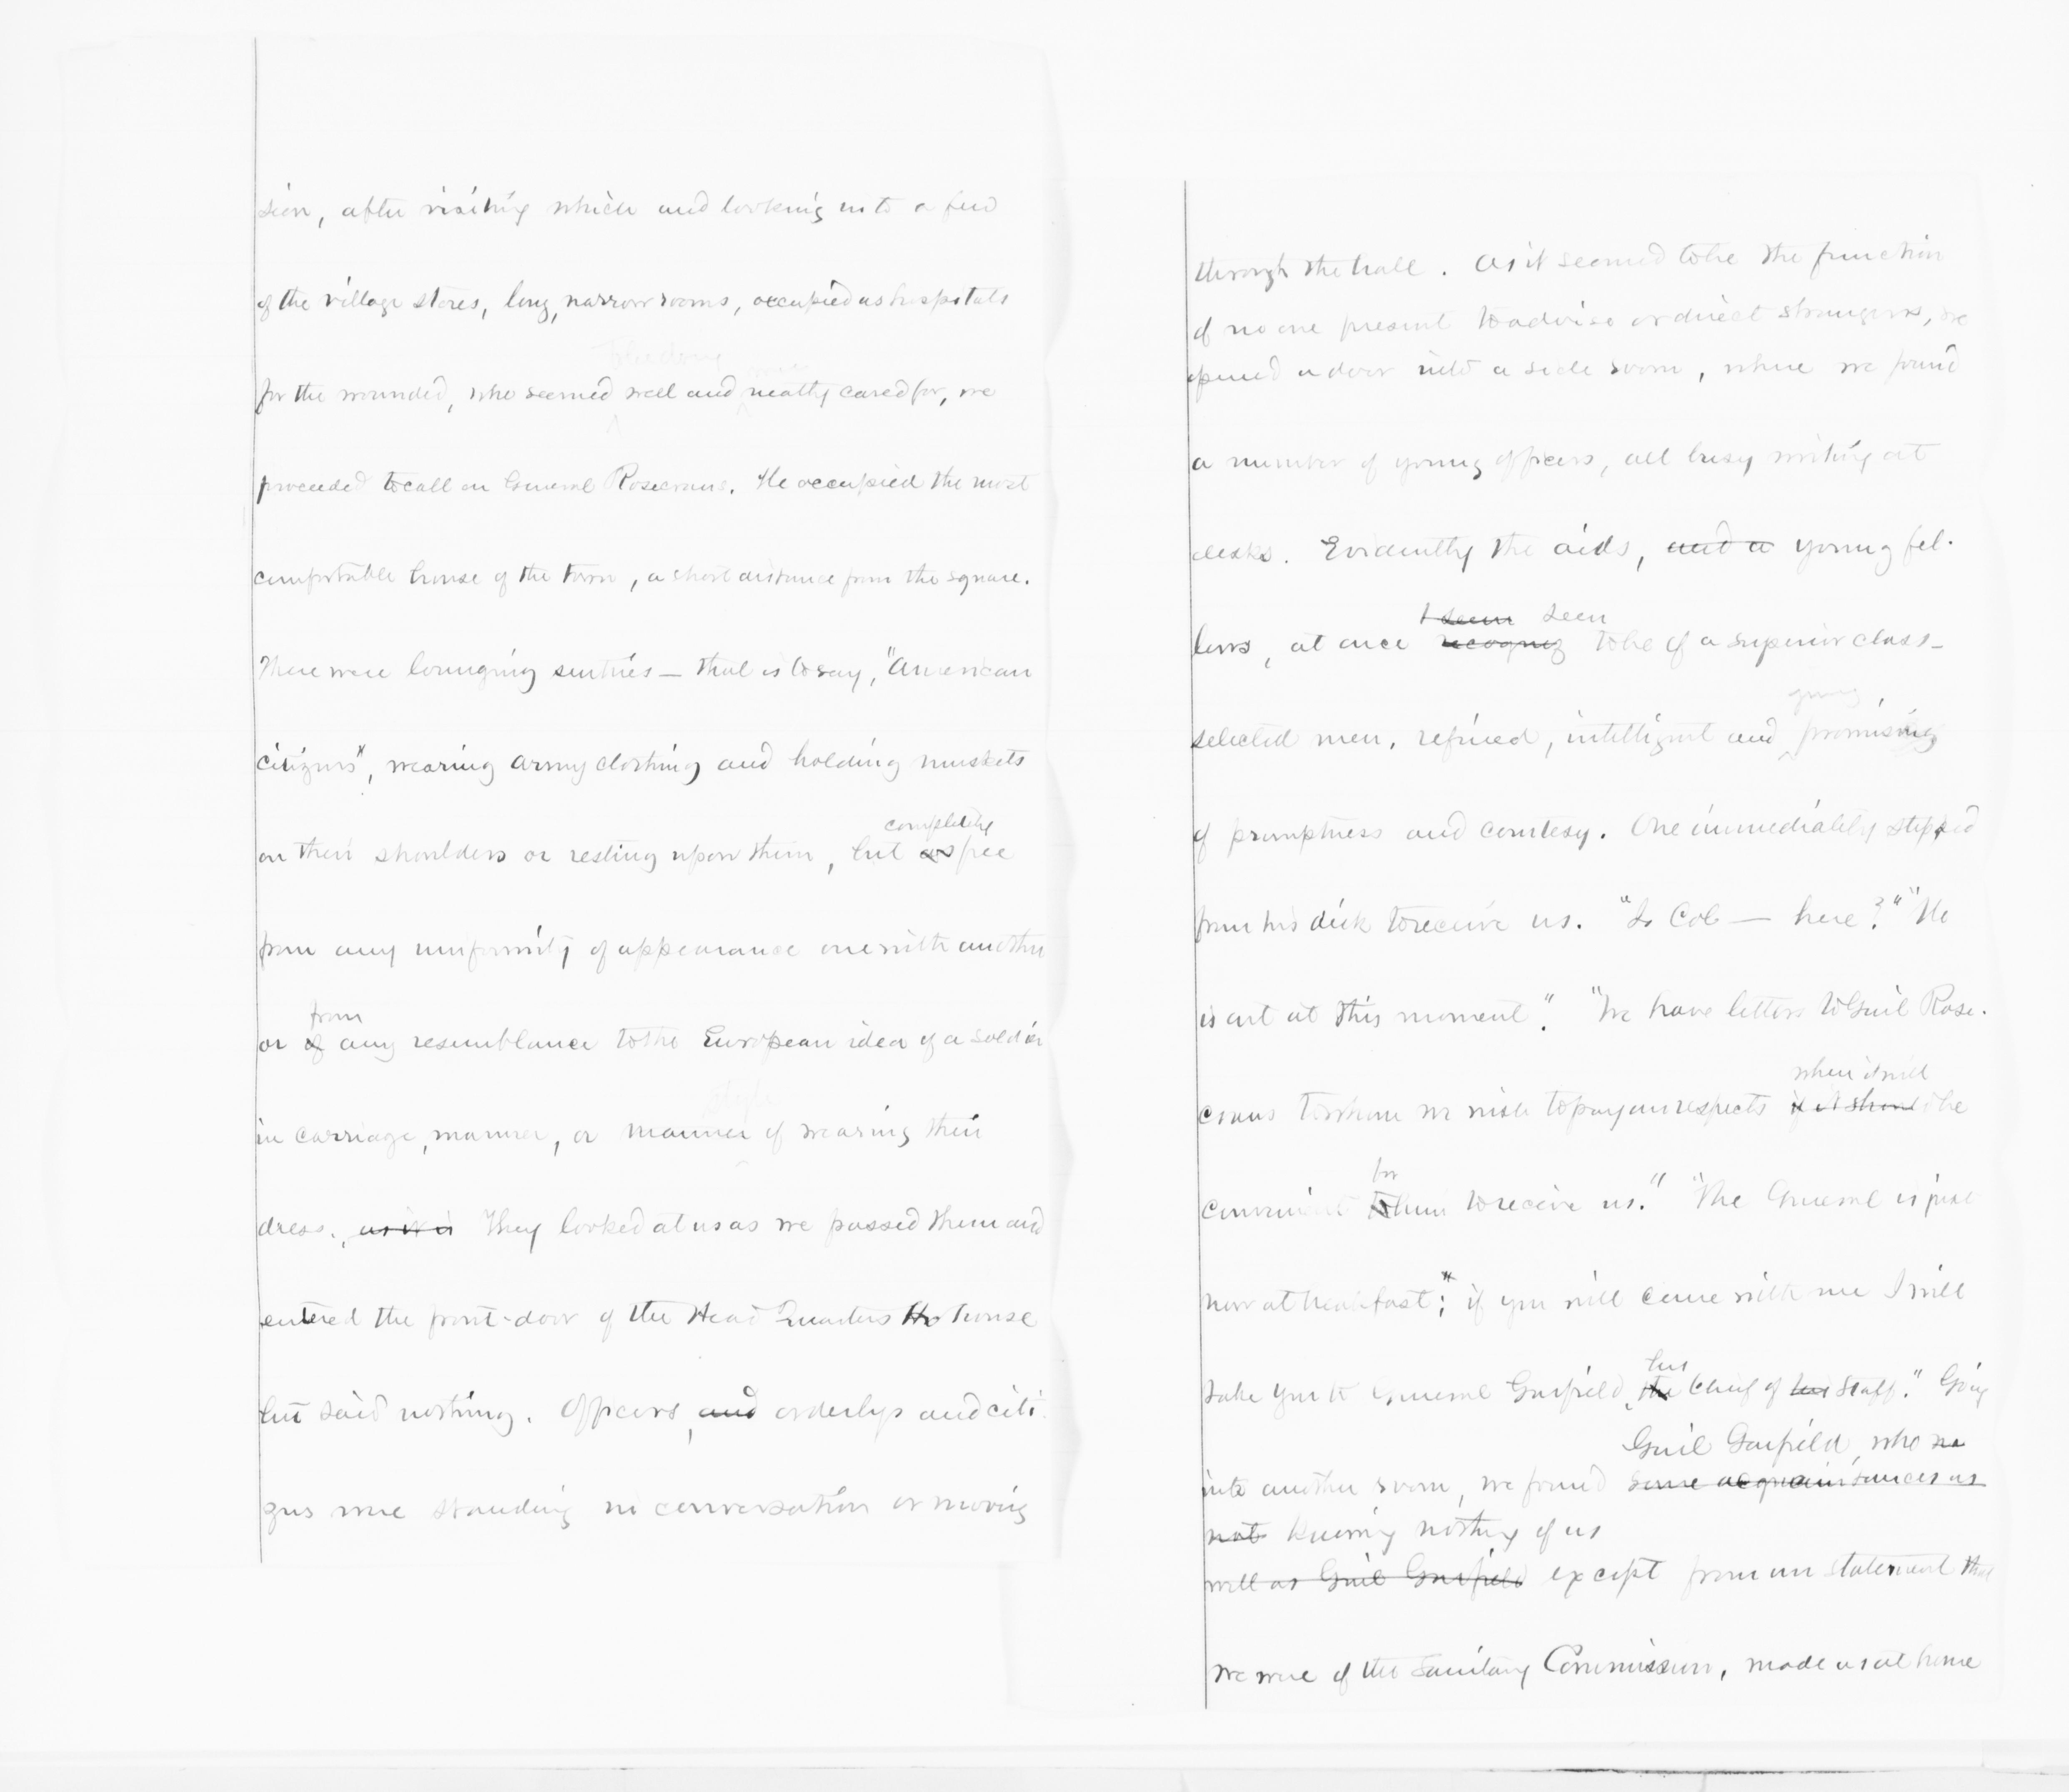 sion, after visiting which and looking into a few
of the village stores, long, narrow rooms, occupied as hospitals
for the wounded, who seemed well and neatly cared for, we
proceeded to call on General Rosecrans. He occupied the most
comfortable house of the town, a short distance from the square.
There were lounging sentries — that is to say, "American
citizens", wearing army clothing and holding muskets
completely
on their shoulders or resting upon them, but as free
from any uniformity of appearance one with another
from
or of any resemblance to the European idea of a soldier
style
in carriage, manner, or manner of wearing their
dress., as it is They looked at us as we passed them and
entered the front-door of the Head Quarters house
but said nothing. Officers, and orderlys and citi
zens were standing in conversation or moving
through the hall. As it seemed to be the function
of no one present to advise or direct strangers, we
opened a door into a side room, where we found
a number of young officers, all busy writing at
desks. Evidently the aids, and a young fel-
I seem seen
lows, at once recogniz to be of a superior class —
giving
selected men, refined, intelligent and promising
of promptness and courtesy. One immediately stepped
from his desk to receive us. "Is Col — here?" "He
is out at this moment." "We have letters to Genl Rose-
when it will
crans to whom we wish to pay our respects if it should be
for
convenient to him to receive us." "The General is just
now at breakfast"; if you will come with me I will
his
take you to General Garfield, the Chief of his Staff." Going
Genl Garfield, who
into another room, we found some acquaintances as
not knowing nothing of us
well as Genl Garfield except from our statement that
we were of the Sanitary Commission, made us at home